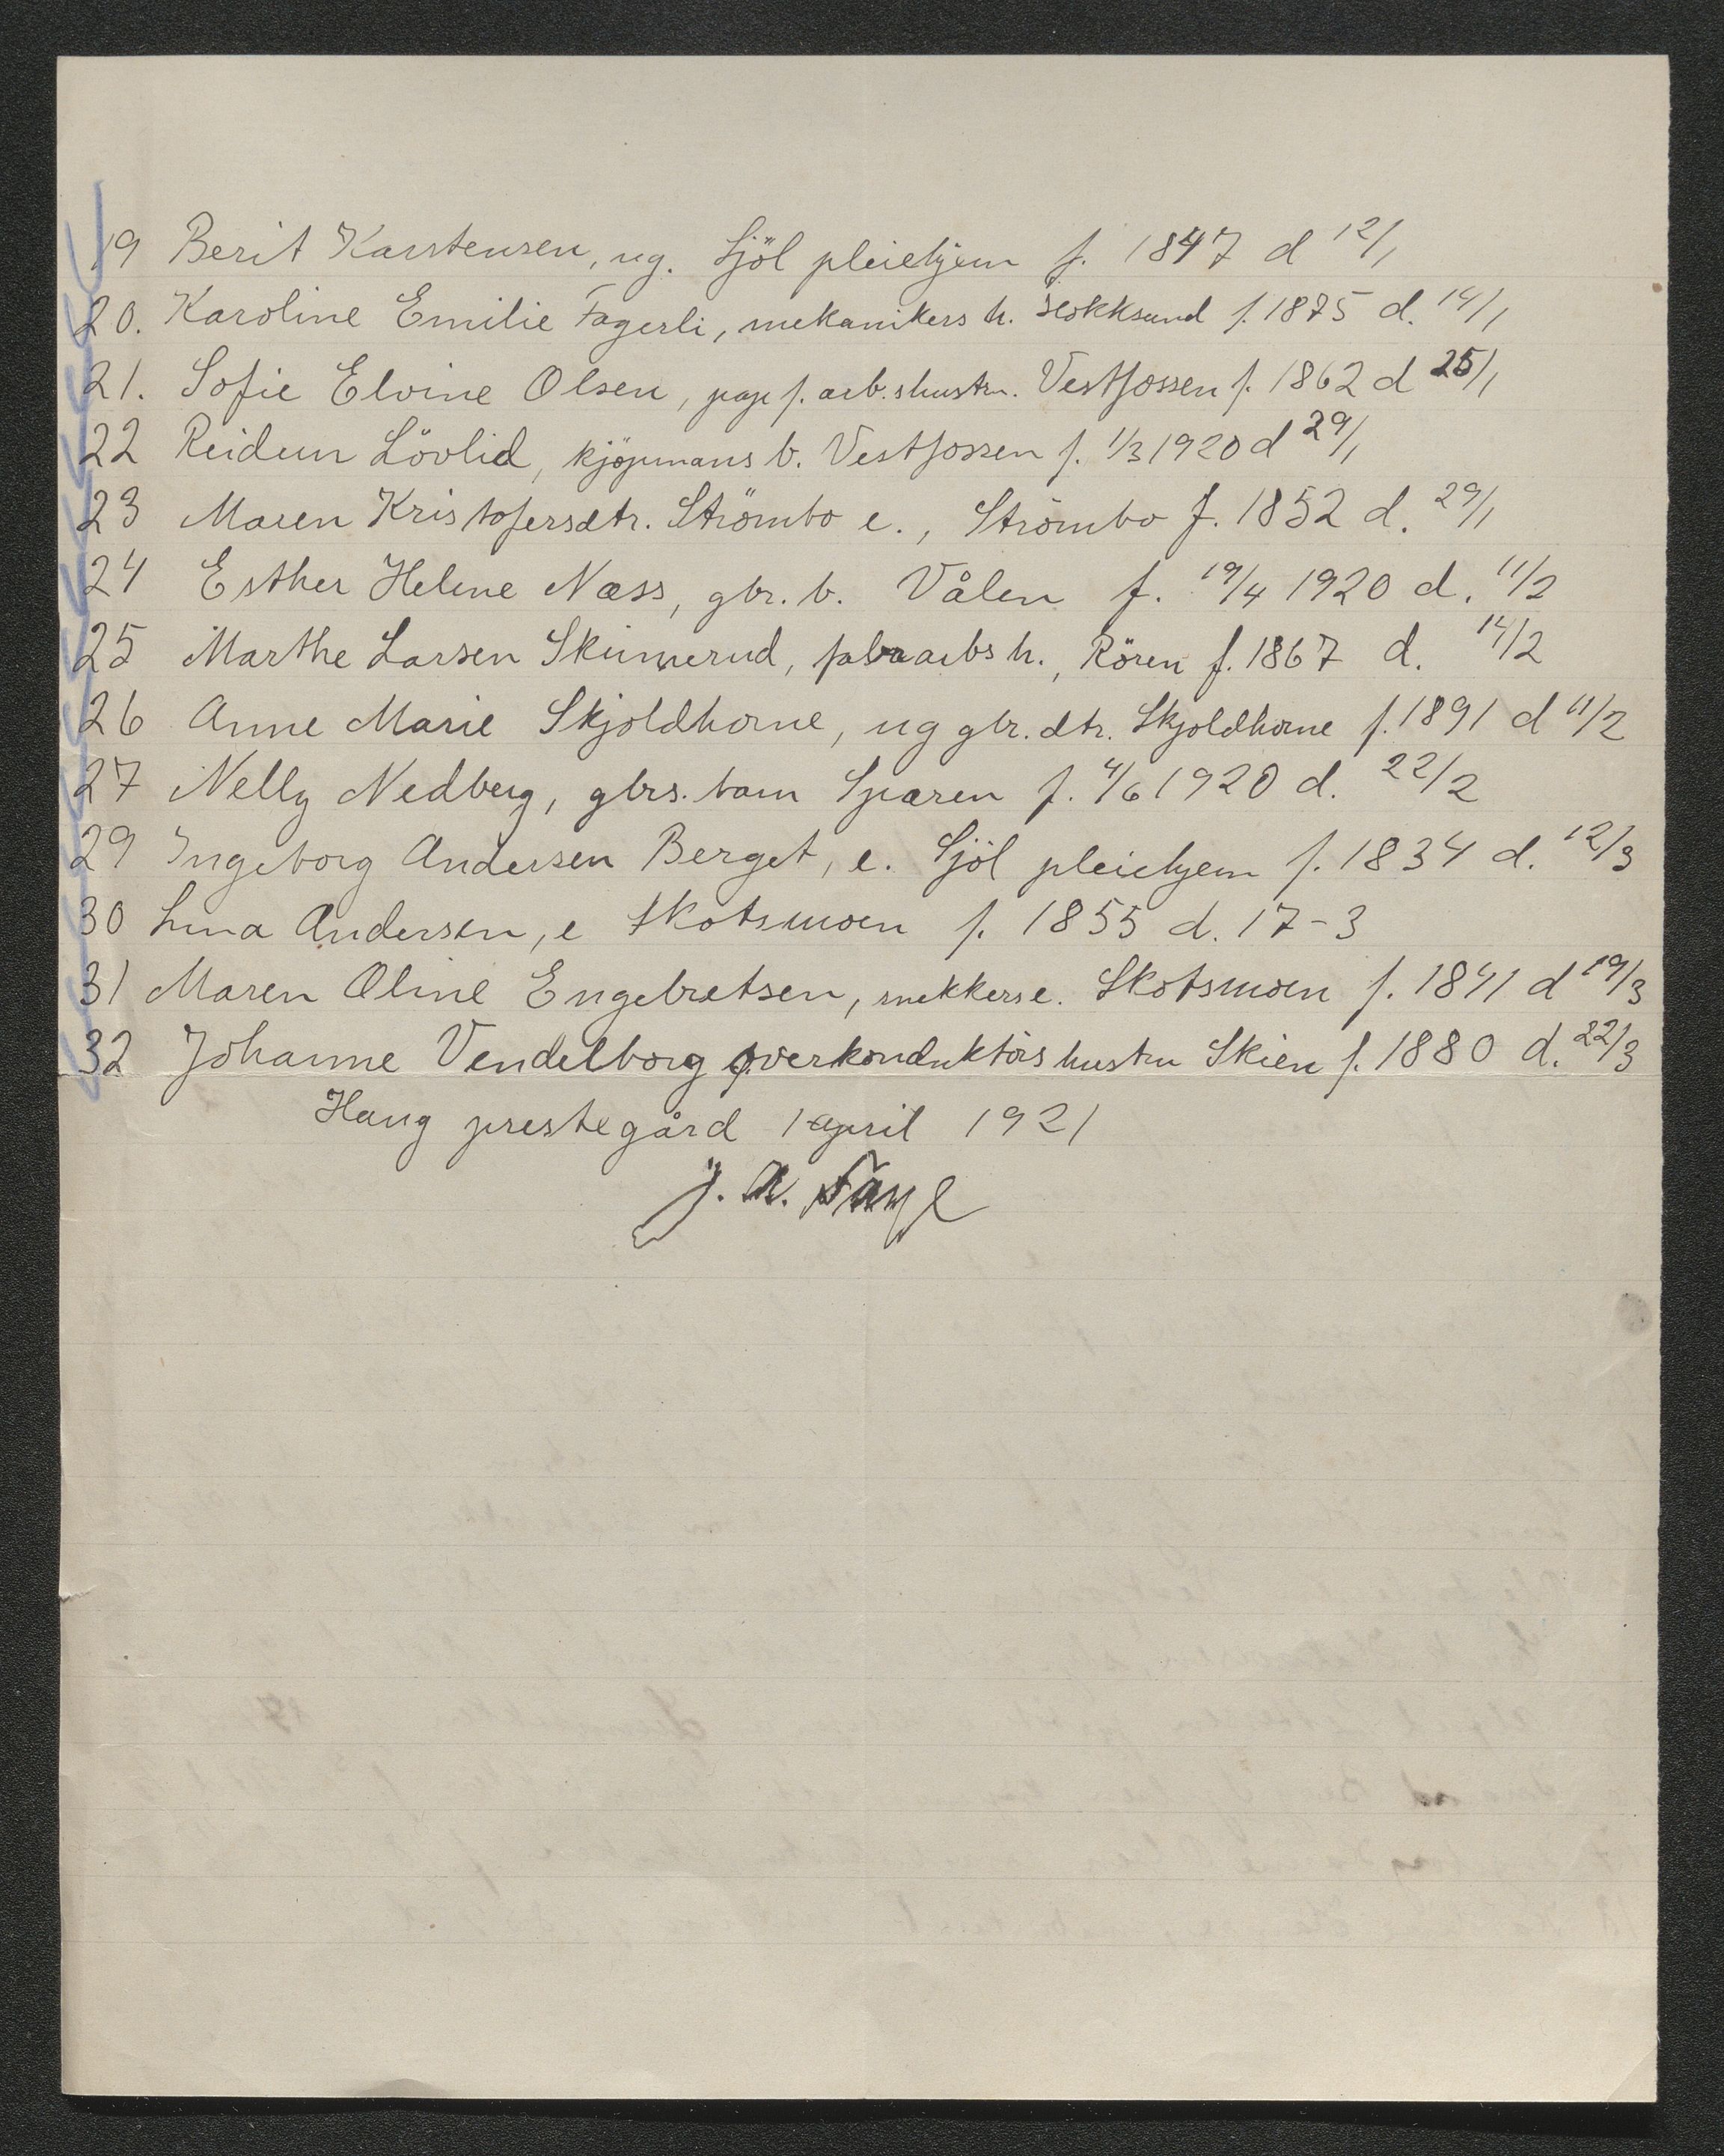 19 Berit Karstensen, ug. Sjöl pleiehjem f. 1847 d 12/1
20. Karoline Emilie Fagerli, mekanikers h. Hokksund f. 1875 d. 14/1
21. Sofie Elvine Olsen, pap f. arb. shustru. Vestfossen f. 1862 d 25/1
22 Reidun Lövlid, kjöpmans b. Vestfossen f. 1/3 1920 d 29/1
23 Maren Kristofersdtr. Strömbo e., Strömbo f. 1852 d. 29/1
24 Esther Helene Næss, gbr. b. Vålen f. 19/4 1920 d. 11/2
25 Marthe Larsen Skinnerud, arbs h., Rören f. 1867 d. 14/2
26 Anne Marie Skjoldhorne, ug gbr. dtr. Skjoldhorne f. 1891 d 11/2
27 Nelly Nedberg, gbrs. barn Sparen f. 4/6 1920 d. 22/2
29 Ingeborg Andersen Berget, e. Sjöl pleiehjem f. 1834 d. 12/3
30 Lina Andersen, e Skotsmoen f. 1855 d. 17-3
31 Maren Oline Engebretsen, snekkers e. Skotsmoen f. 1841 d 19/3
32 Johanne Vendelborg overkonduktörs hustru Skien f. 1880 d. 22/3
Haug prestegård 1 april 1921
J. A.